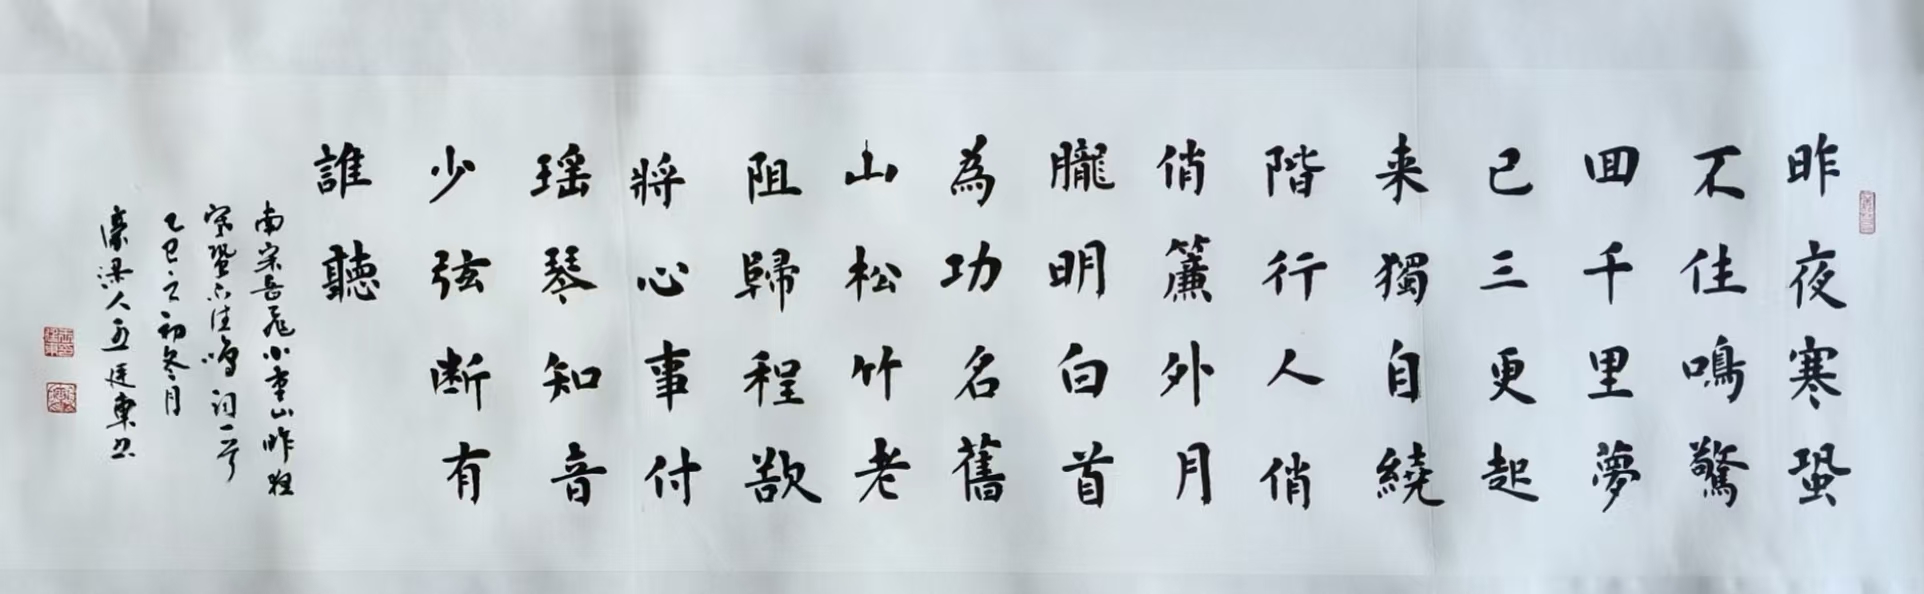 昨夜寒蛩
不住鳴驚
囬千里夢
已三更起
来獨自繞
階行人俏
俏簾外月
朧明白首
為功名舊
山松竹老
阻歸程欲
將心事付
瑶琴知音
少弦断有
誰聽
南宋岳飛小重山昨夜
寒蛩不住鳴詞一首
乙巳之初冬月
濠梁人廷東书